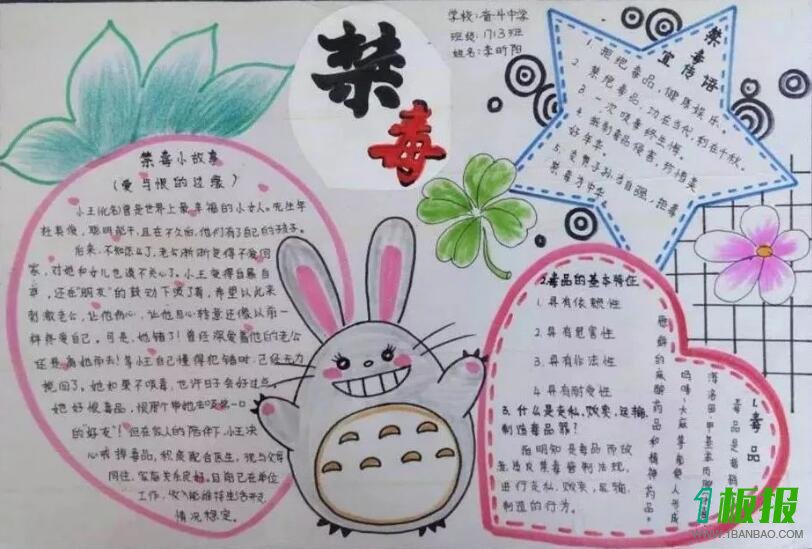 禁
毒
学校:奋斗中学
班级:1713班
姓名:李昕阳
禁毒小故事
(爱与恨的边缘)
小王(化名)曾是世界上最幸福的小女人。先生年
轻英俊,聪明能干,且在不久后,他们有了自己的孩子。
后来,不知怎么了,老公渐渐变得不爱回
家,对她和女儿也漠不关心了。小王觉得自暴自
弃,还在"朋友"的鼓动下吸了毒,希望以此来
刺激老公,让他伤心,让他回心转意还像以前一
样疼爱自己。可是,她错了!曾经深爱着他的老公
还是离她而去!等小王自己懂得犯错时,已经无力
挽回了。她如果不吸毒,也许日子会好过点。
她好恨毒品,恨那个带她去吸第一口
的"好友"!但在家人的陪伴下,小王决
心戒掉毒品,积极配合医生,现与父母
同住,家庭关系良好。目前已在单位
工作,收入能维持生活开支
情况稳定。
禁毒
宣传语
1.拒绝毒品,健康娱乐。
2.禁绝毒品,功在当代,利在千秋。
3.一次吸毒终生悔。
4.抵制毒品侵害,珍惜美
好年华。
5.爱男子孙当自强,拒毒
禁毒为中华。
1.毒品
毒品是指鸦片
海洛因、甲基苯丙胺
吗啡、大麻等能使人形成
瘾癖的麻醉药品和精神药品。
2.毒品的基本特征
1.具有依赖性
2.具有危害性
3.具有非法性
4.具有耐受性
3.什么是走私,贩卖,运输,
制造毒品罪?
指明知是毒品而故
意违反禁毒管制法规,
进行走私,贩卖,运输,
制造的行为。
1板报
WWW.1BANBAO.COM